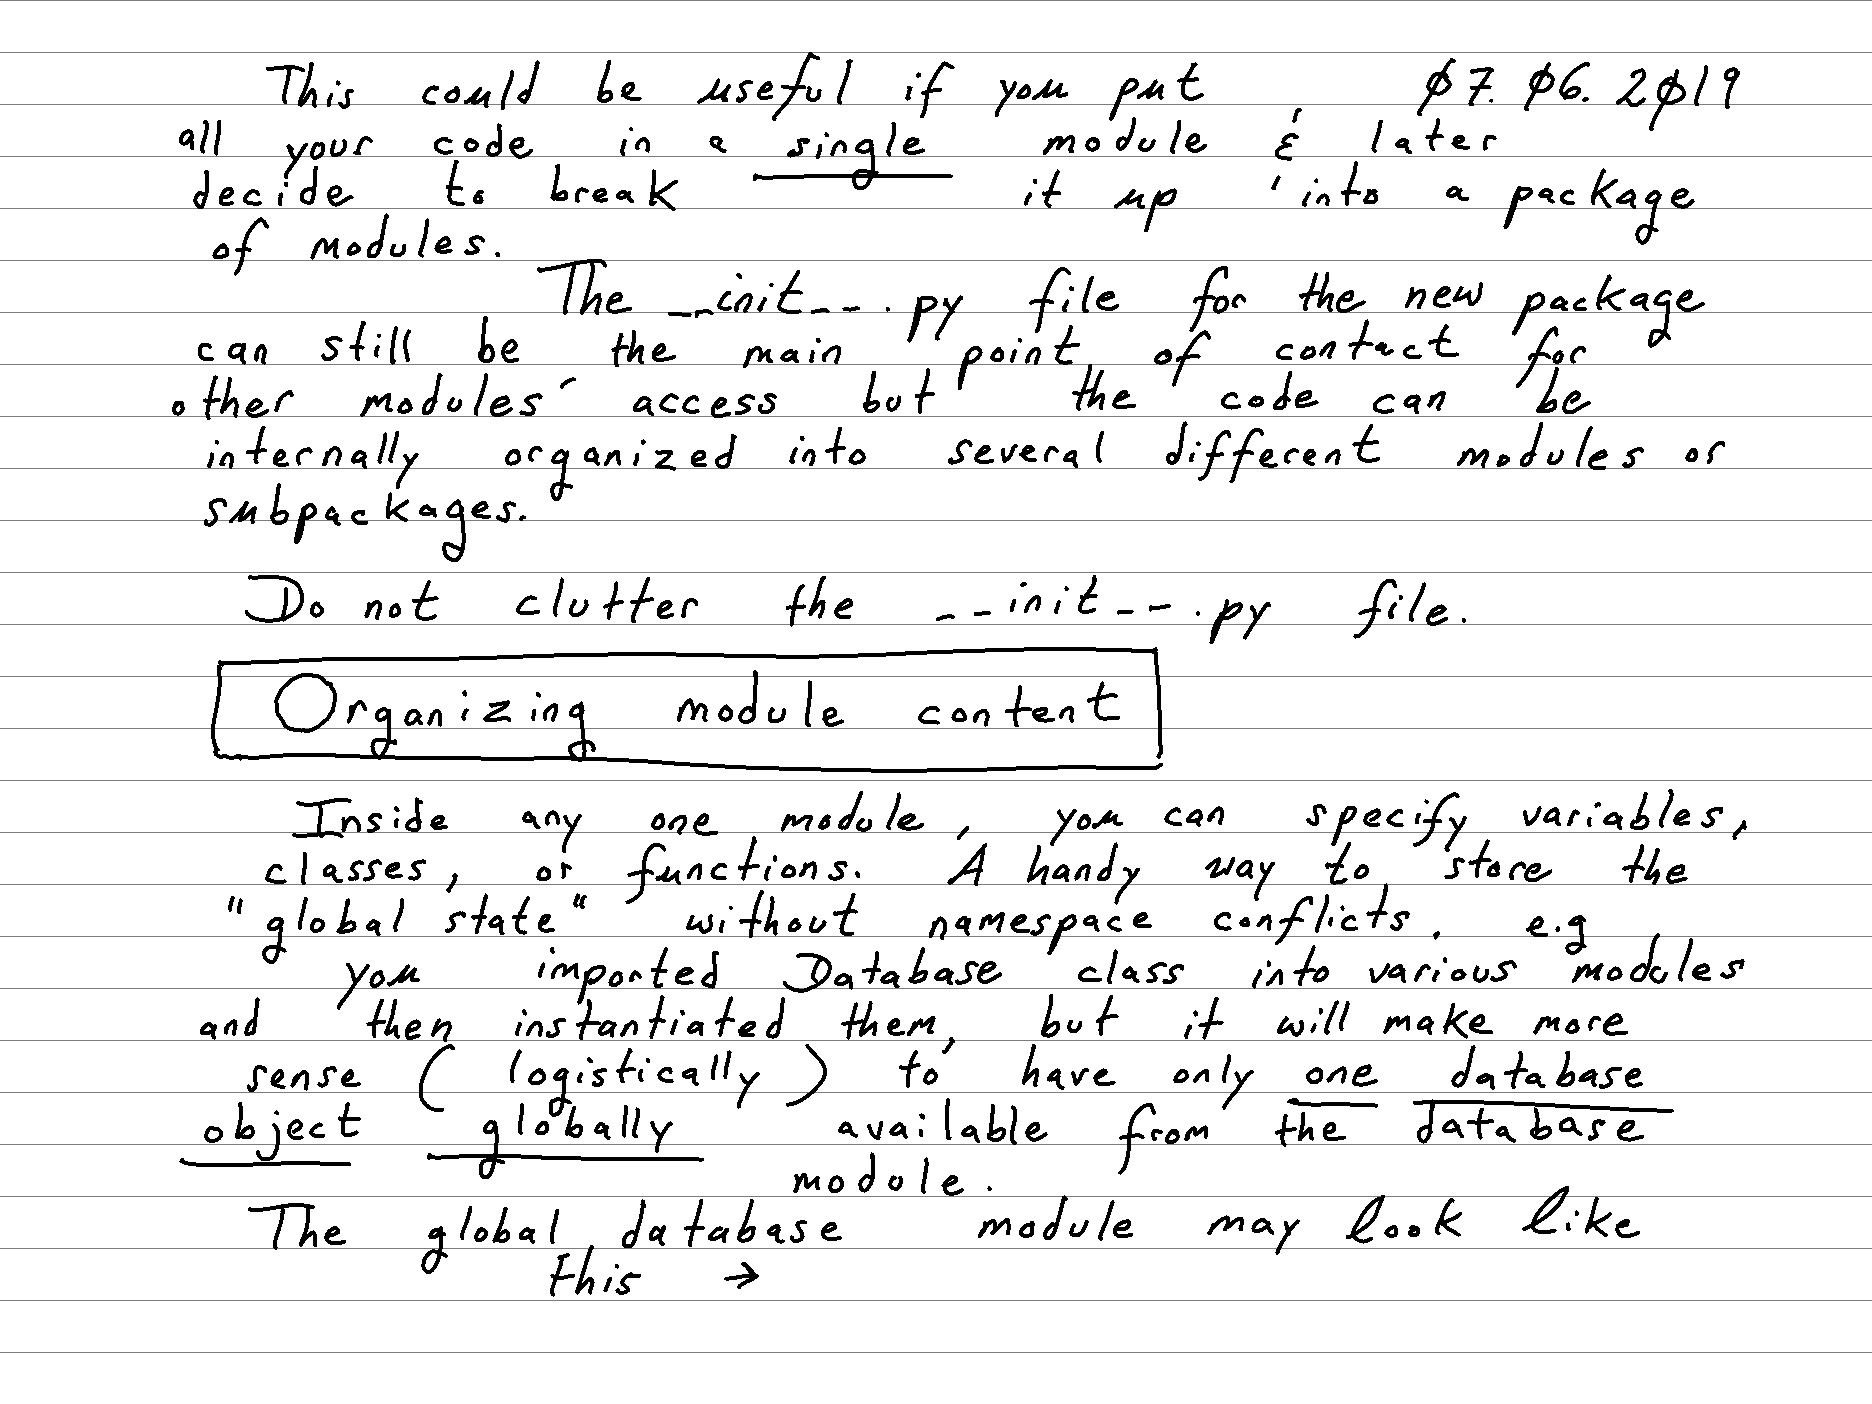 This could be useful if you put 07.06.2019
all your code in a single module & later
decide to break it up into a package
of modules.
The __init__.py file for the new package
can still be the main point of contact for
other modules' access but the code can be
internally organized into several different modules or
subpackages.
Do not clutter the __init__.py file.
Organizing module content
Inside any one module, you can specify variables,
classes, or functions. A handy way to store the
"global state" without namespace conflicts. e.g
you imported Database class into various modules
and then instantiated them, but it will make more
sense (logistically) to have only one database
object globally available from the database
module.
The global database module may look like
this →